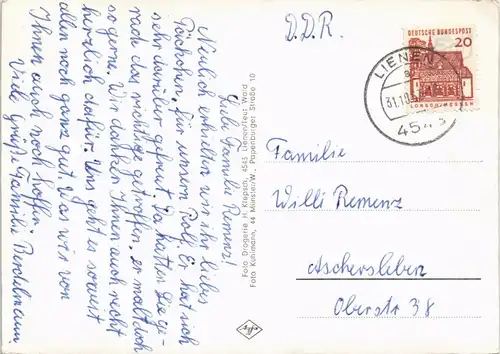 Liebe Familie Remenz!
Neulich erhielten wir ihr liebes
Päckchen für unsern Rolf. Er hat sich
sehr darüber gefreut. Da hatten Sie ge-
rade das richtige getroffen, er malt doch
so gerne. Wir danken Ihnen auch recht
herzlich dafür. Uns geht es soweit
allen noch ganz gut. Was wir von
Ihnen auch noch hoffen.
Viele Grüße Familie Berdelmann
Foto Drogerie H. Krepsch, 4543 Lienen/Teut. Wald
Foto Kuhlmann, 44 Münster/W., Papenburger Straße 10
D.D.R.
DEUTSCHE BUNDESPOST
20
LORSCH/HESSEN
LIENEN
a
31.10.
4543
Familie
Willi Remenz
Aschersleben
Oberstr 38